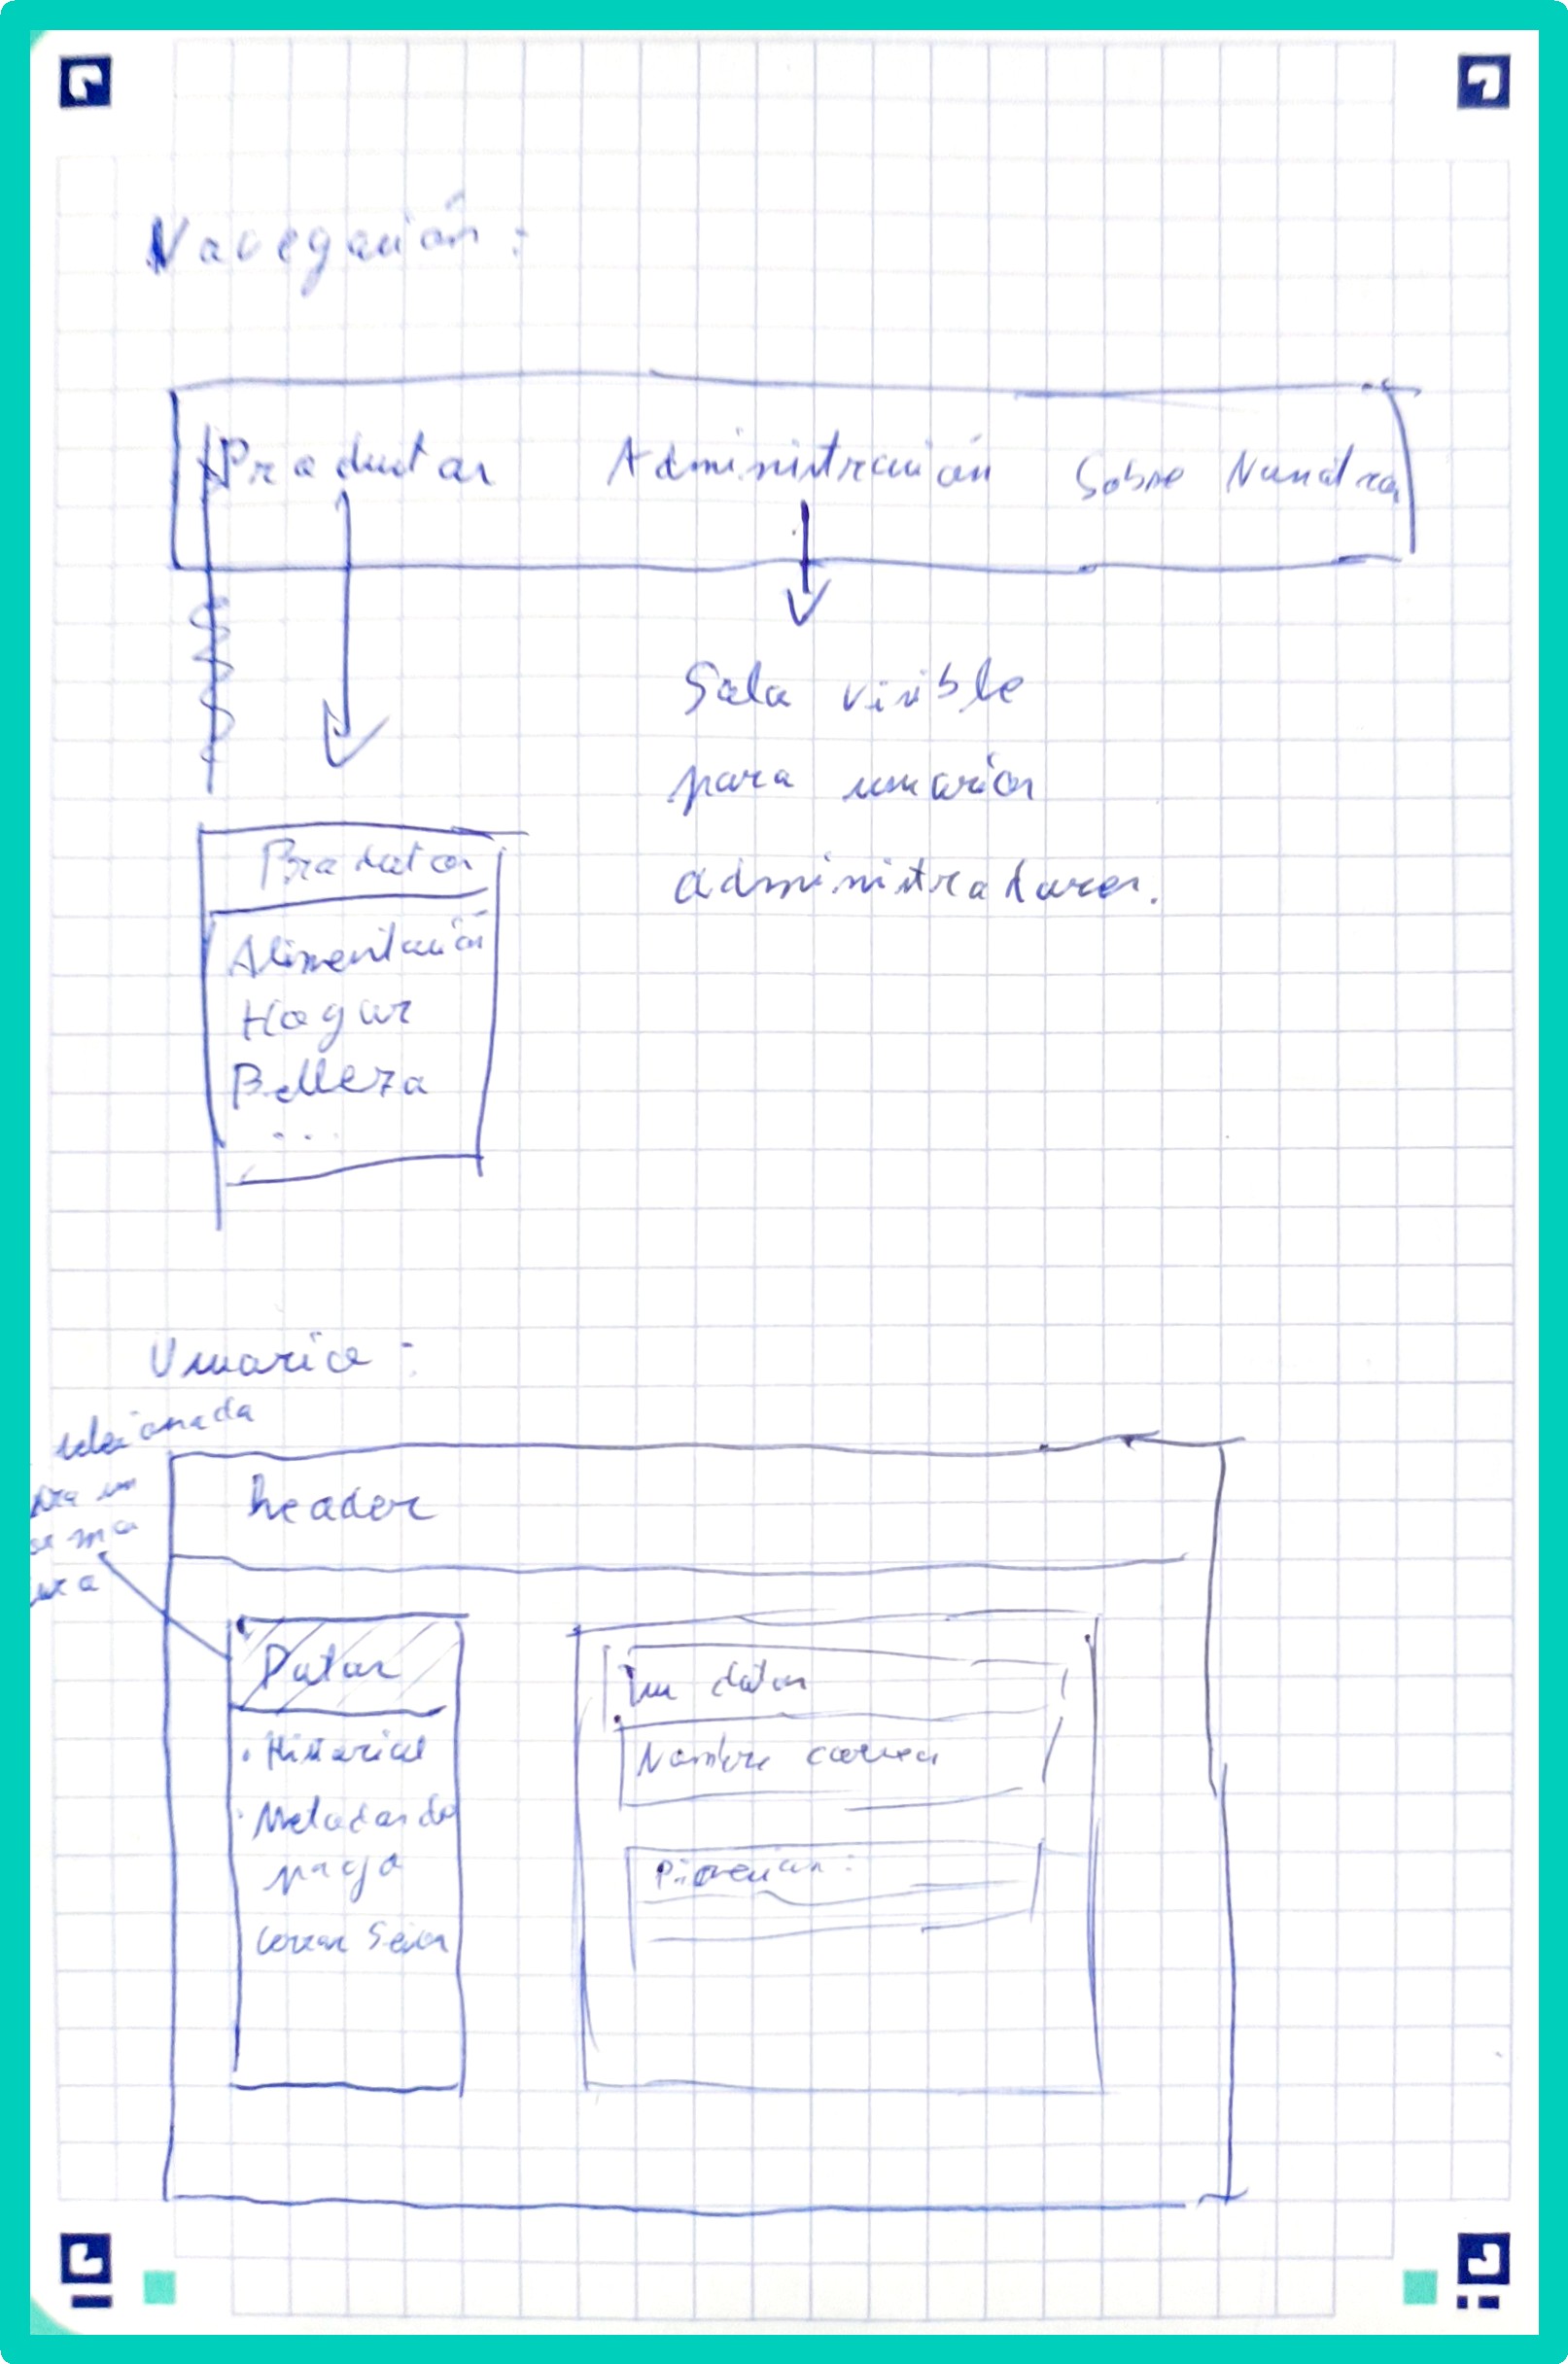 Navegación:
Productos Administración Sobre Nosotros
Solo visible
para usuarios
administradores.
Productos
Alimentación
Hogar
Belleza
...
Usuario:
header
Datos
· Historial
· Metodos de
pago
Cerrar Sesion
Tus datos
Nombre correo